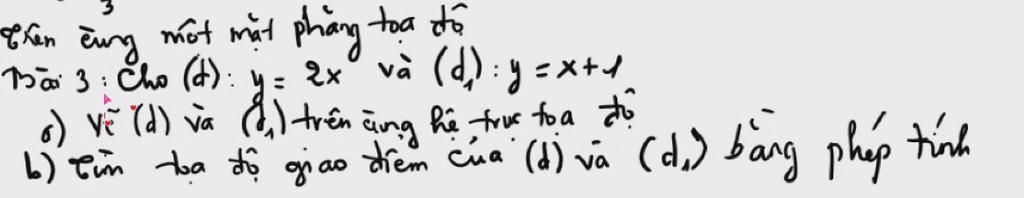 3
trên cùng một mặt phẳng tọa độ
Bài 3: Cho (d): y = 2x và (d₁): y = x+1
a) Vẽ (d) và (d₁) trên cùng hệ trục tọa độ
b) Tìm tọa độ giao điểm của (d) và (d₁) bằng phép tính